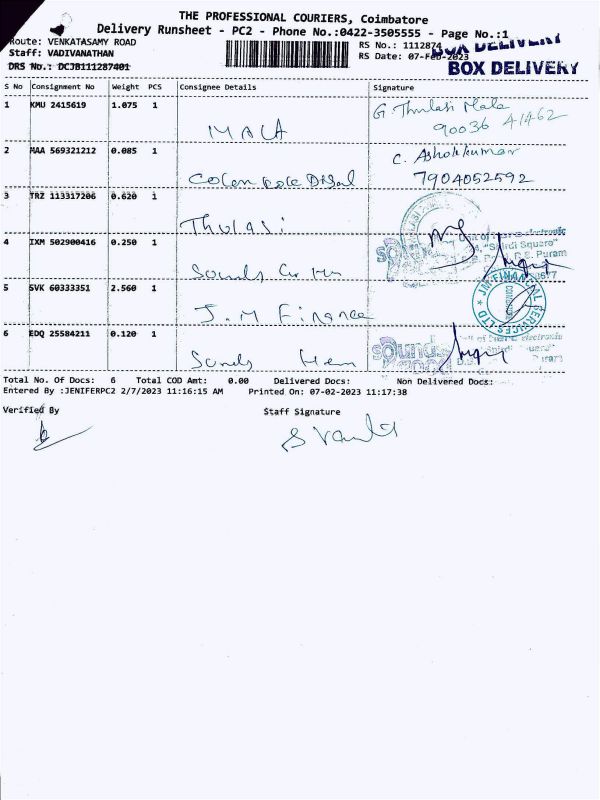 THE PROFESSIONAL COURIERS, Coimbatore
Delivery Runsheet - PC2 - Phone No.:0422-3505555 - Page No.:1
Route: VENKATASAMY ROAD RS No.: 1112874 BOX DELIVERY
Staff: VADIVANATHAN RS Date: 07-Feb-2023
DRS No.: DCJB111287401 BOX DELIVERY
S No Consignment No Weight PCS Consignee Details Signature
1 KMU 2415619 1.075 1 G. Thulasi Mala
MALA 90036 41462
2 MAA 569321212 0.085 1 C. Ashokkumar
7904052592
3 TRZ 113317206 0.620 1
Thulasi
4 IXM 502900416 0.250 1 "Shirdi Square"
Puram
Sounds
5 SVK 60333351 2.560 1 JM FINANCIAL SERVICES LTD
J.M Finance
6 EDQ 25584211 0.120 1 Sounds
Total No. Of Docs: 6 Total COD Amt: 0.00 Delivered Docs: Non Delivered Docs:
Entered By :JENIFERPC2 2/7/2023 11:16:15 AM Printed On: 07-02-2023 11:17:38
Verified By Staff Signature